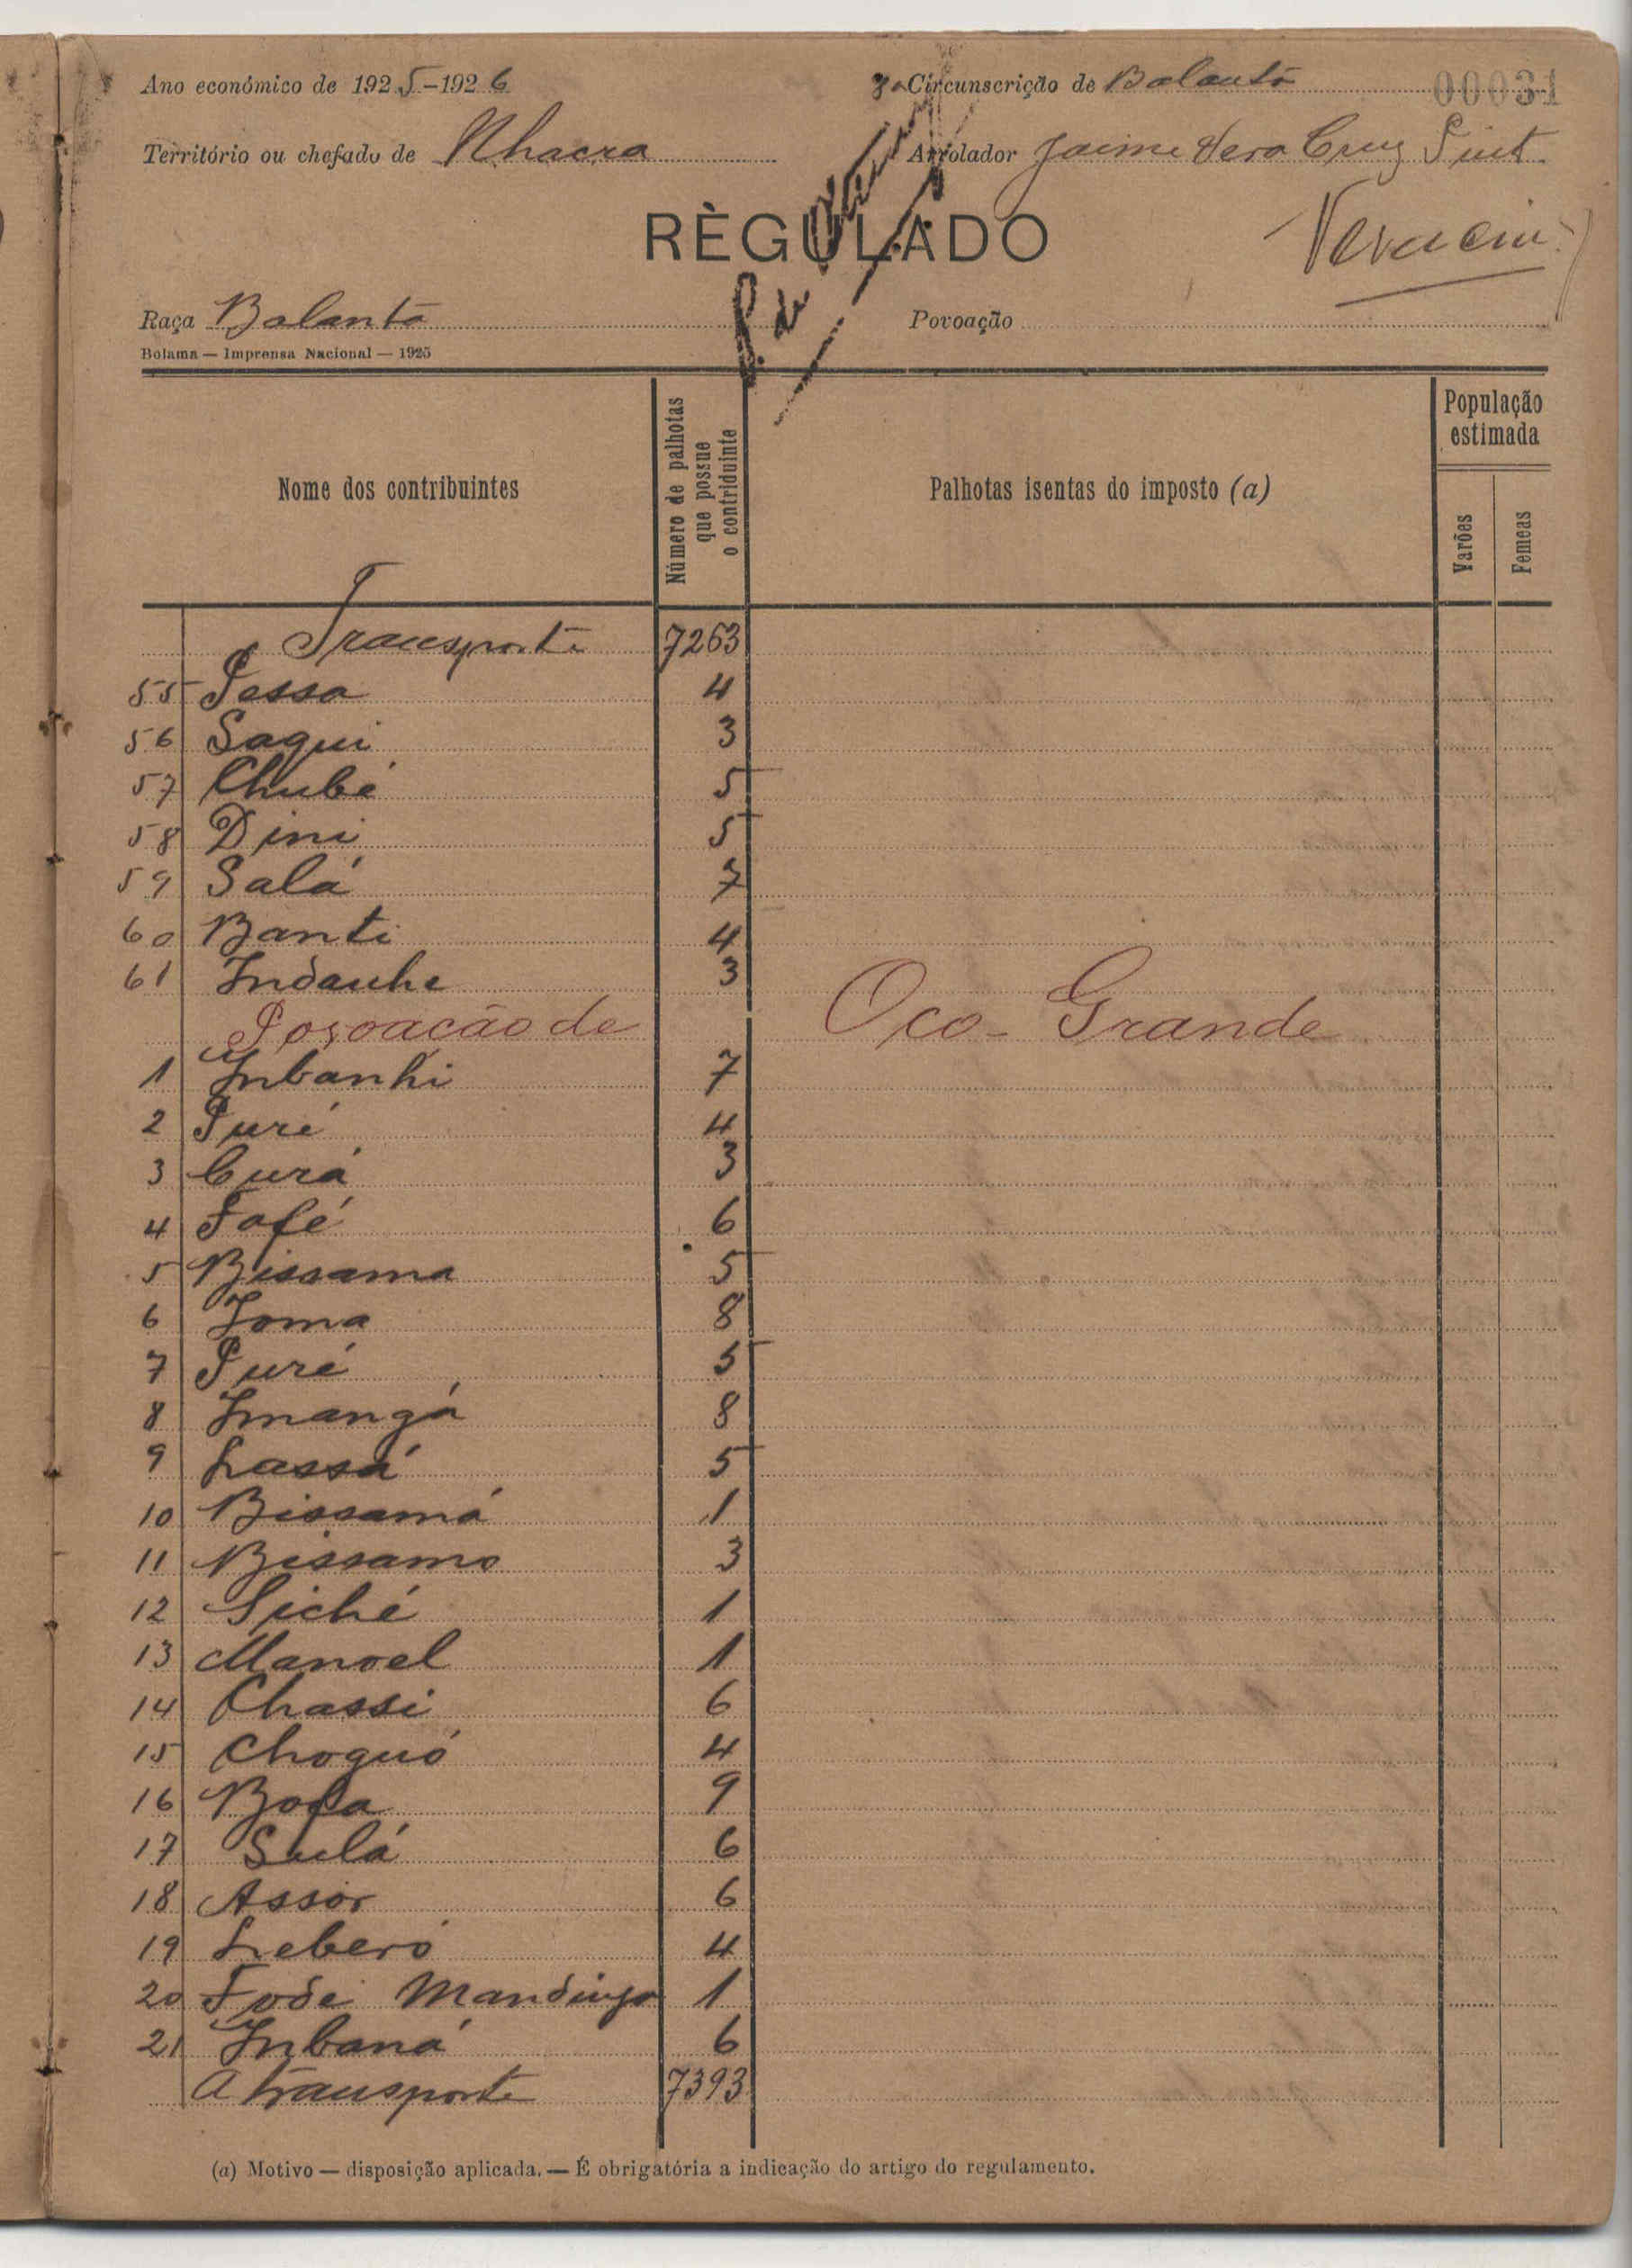 Ano económico de 1925-1926
Circunscrição de Balanta
00031
Território ou chefado de Nhacra
Arrolador Jaime Vera Cruz Pint
RÈGULADO
Raça Balanta
Povoação
Bolama — Imprensa Nacional — 1925
Nome dos contribuintes
Número de palhotas que possue o contriduinte
Palhotas isentas do imposto (a)
População estimada
Varões
Femeas
Transporte 7263
55 Pessa 4
56 Sagui 3
57 Chubé 5
58 Dini 5
59 Salá 7
60 Banti 4
61 Indauhe 3
Povoacão de Oco-Grande
1 Inbanhi 7
2 Puré 4
3 Curá 3
4 Fafé 6
5 Bissama 5
6 Joma 8
7 Puré 5
8 Imangá 8
9 Lassá 5
10 Bissamá 1
11 Bissamo 3
12 Siché 1
13 Manoel 1
14 Chassi 6
15 Choguó 4
16 Bofa 9
17 Sulá 6
18 Assor 6
19 Leberó 4
20 Fodé Mandinga 1
21 Inbaná 6
A transporte 7393
(a) Motivo — disposição aplicada. — É obrigatória a indicação do artigo do regulamento.